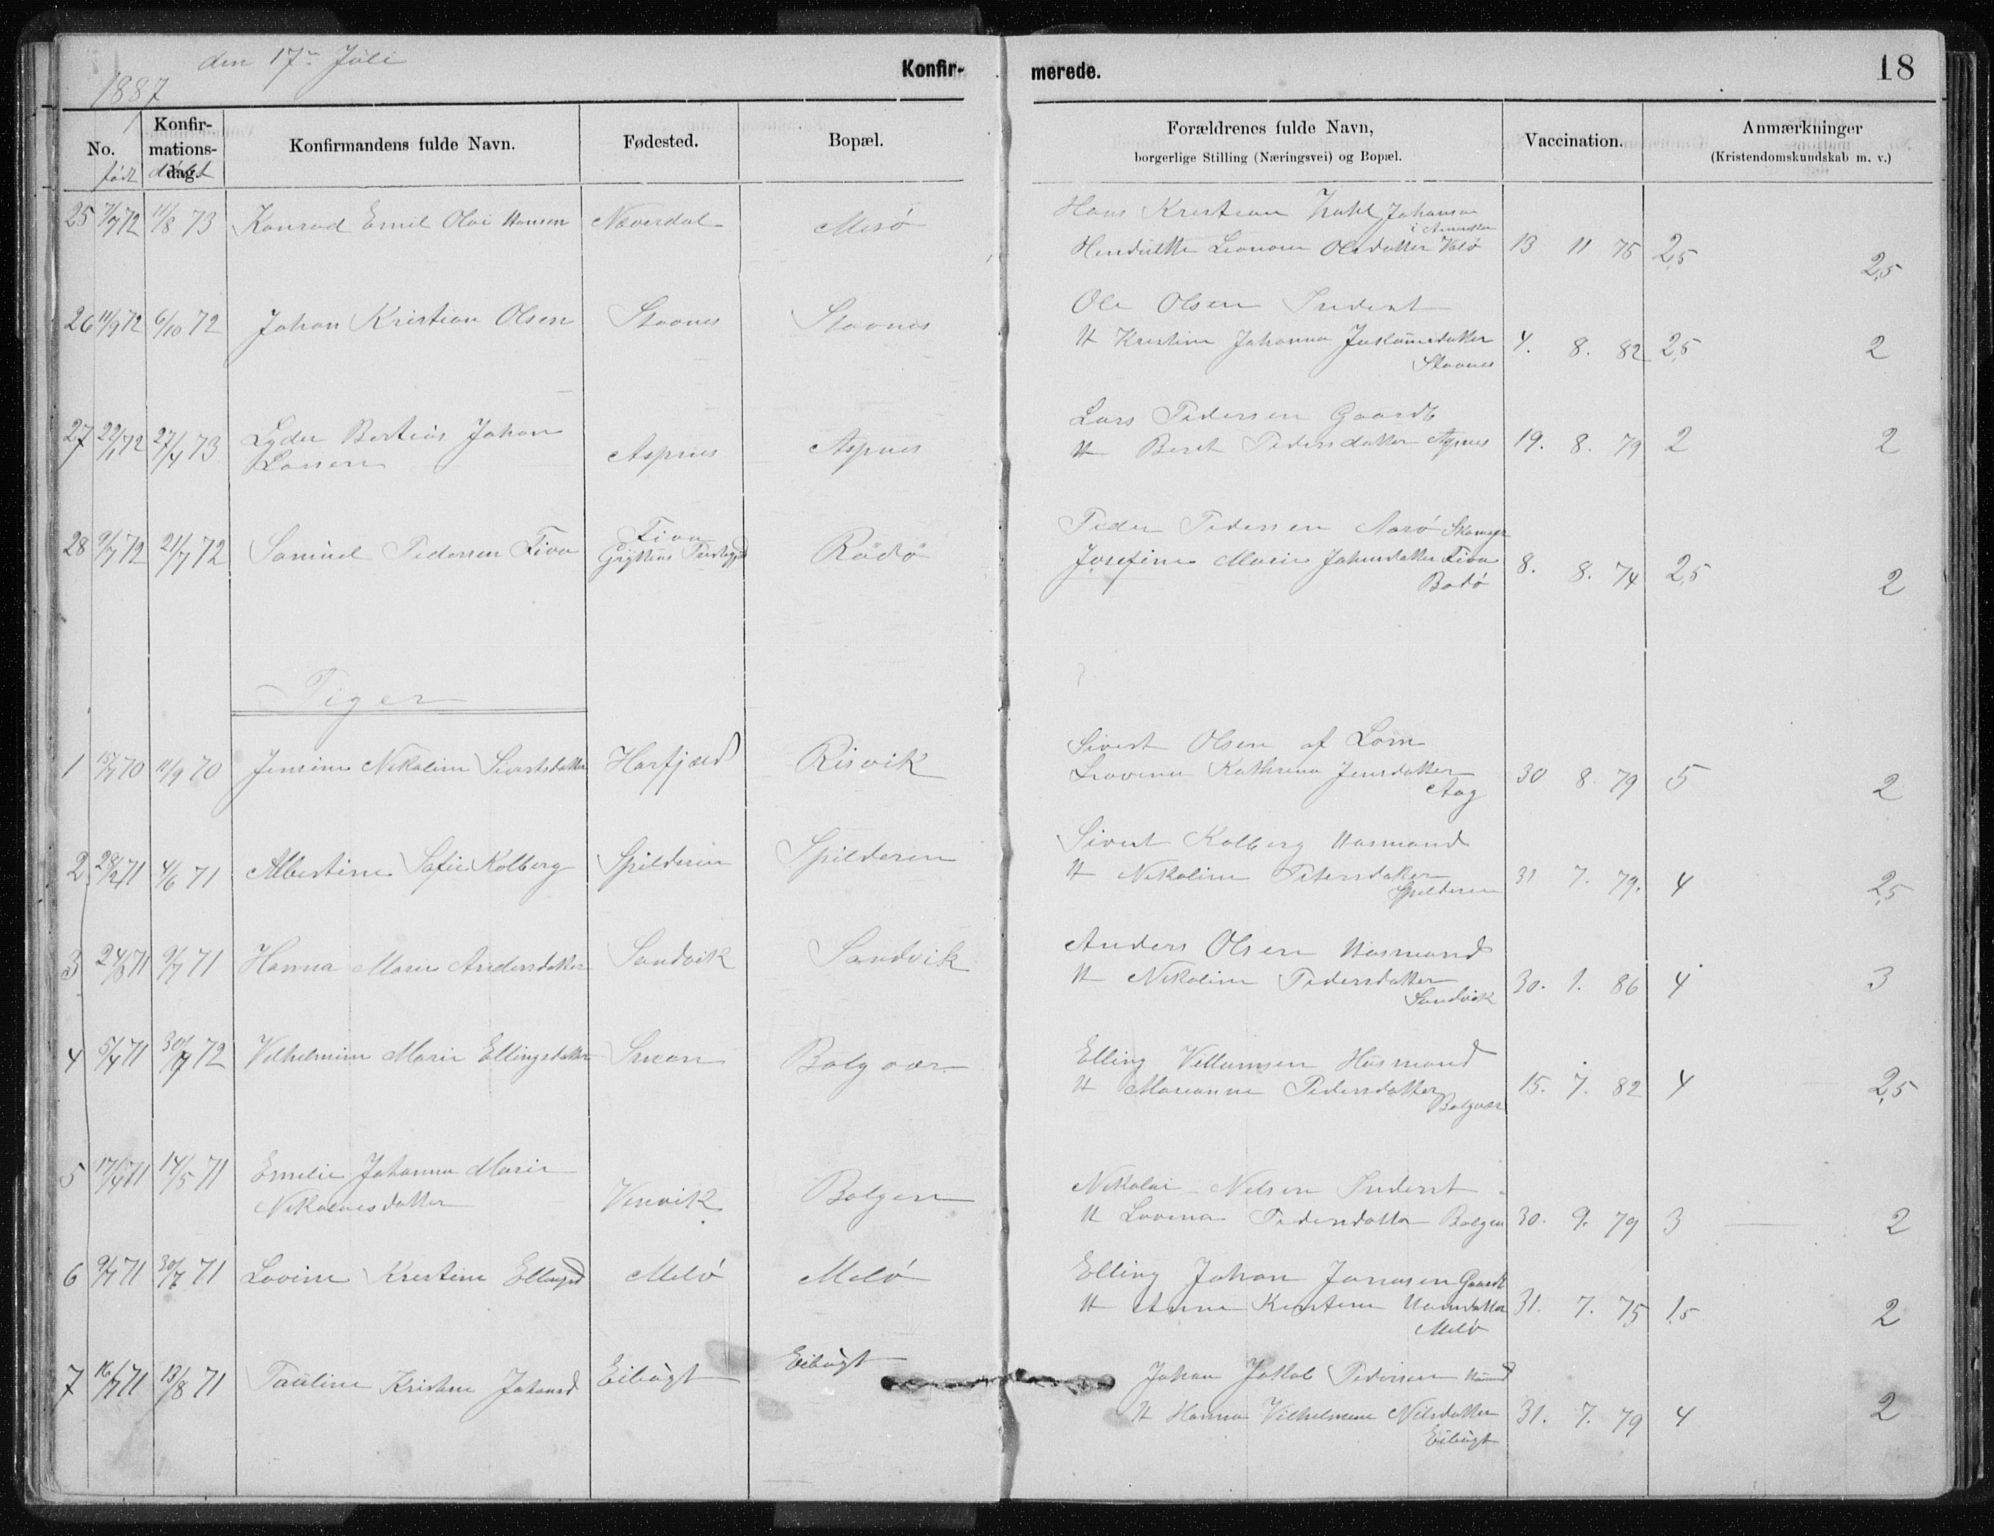 1887 den 17de Juli
Konfirmerede.
18
No. født
Konfirmationsdag. døbt
Konfirmandens fulde Navn.
Fødested.
Bopæl.
Forældrenes fulde Navn,
borgerlige Stilling (Næringsvei) og Bopæl.
Vaccination.
Anmærkninger
(Kristendomskundskab m. v.)
25 7/9 72 11/8 73 Konrad Emil Olai Hansen Næverdal Mesø Hans Kristian Johansen i Amerika
Olsdatter Valø 13 11 75 2,5 2,5
26 11/9 72 6/10 72 Johan Kristian Olsen Stavnes Stavnes Ole Olsen Inderst
H Kristine Johanna
Stavnes 4. 8. 82 2,5 2
27 22/1 72 27/4 73 Lyder Berteus Johan
Larsen Aspnes Aspnes Lars Pedersen Gaardb
H Beret Pedersdatter Aspnes 19. 8. 79 2 2
28 9/7 72 21/7 72 Samuel Pedersen Fiva Fiva
Rødø Peder Pedersen
Josefine Marie Johnsdatter Fiva
Bodø 8. 8. 74 2,5 2
Piger
1 15/7 70 11/9 70 Jensine Nikoline Sivertsdatter Harfjæld Risvik Sivert Olsen af Lom
Lovena Kathrina Jensdatter
Aag 30 8. 79 5 2
2 28/2 71 4/6 71 Albertine Sofie Kolberg Spilderen Spilderen Sivert Kolberg Husmand
H Nikoline Petersdatter
Spilderen 31 7. 79. 4 2,5
3 24/3 71 9/7 71 Hanna Marie Andersdatter Sandvik Sandvik Anders Olsen Husmand
H Nikoline Pedersdatter
Sandvik 30. 1. 86 4 3
4 5/4 71 30/7 72 Vilhelmine Marie Ellingsdatter Bolgvær Elling Villumsen Husmand
H Marianne Pedersdatter
Bolgvær 15. 7. 82 4 2,5
5 17/4 71 14/5 71 Emelie Johanna Marie
Nikolaisdatter Venvik Bolgen Nikolai Nilsen Inderst
H Lovena Pedersdatter Bolgen 30. 9. 79 3 2
6 9/7 71 30/7 71 Lovine Kristine Ellingsd Melø Melø Elling Johan Jonasen Gaardb
H Anne Kirstine Hansdatter
Melø 31. 7. 75 1,5 2
7 16/7 71 13/8 71 Pauline Kristine Johansd Eibugt Eibugt Johan Jakob Pedersen Husmd
H Hanna Vilhelmine Nilsdatter
Eibugt 31. 7. 79 4 2